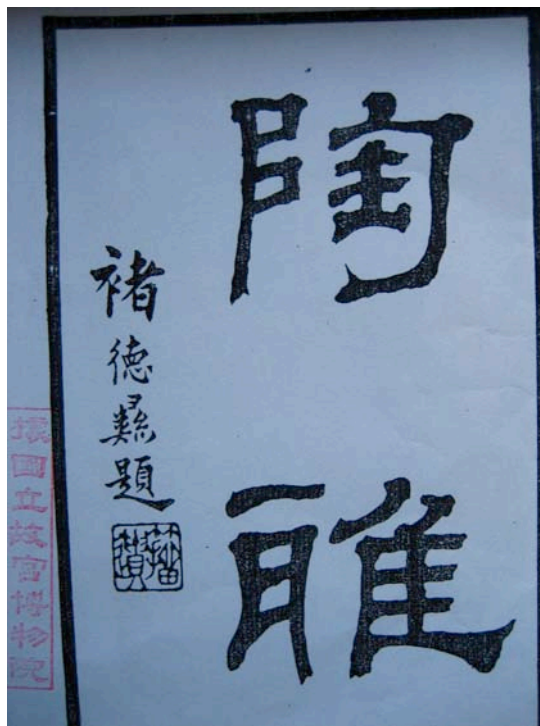 陶雅
褚德彝題
據國立故宮博物院